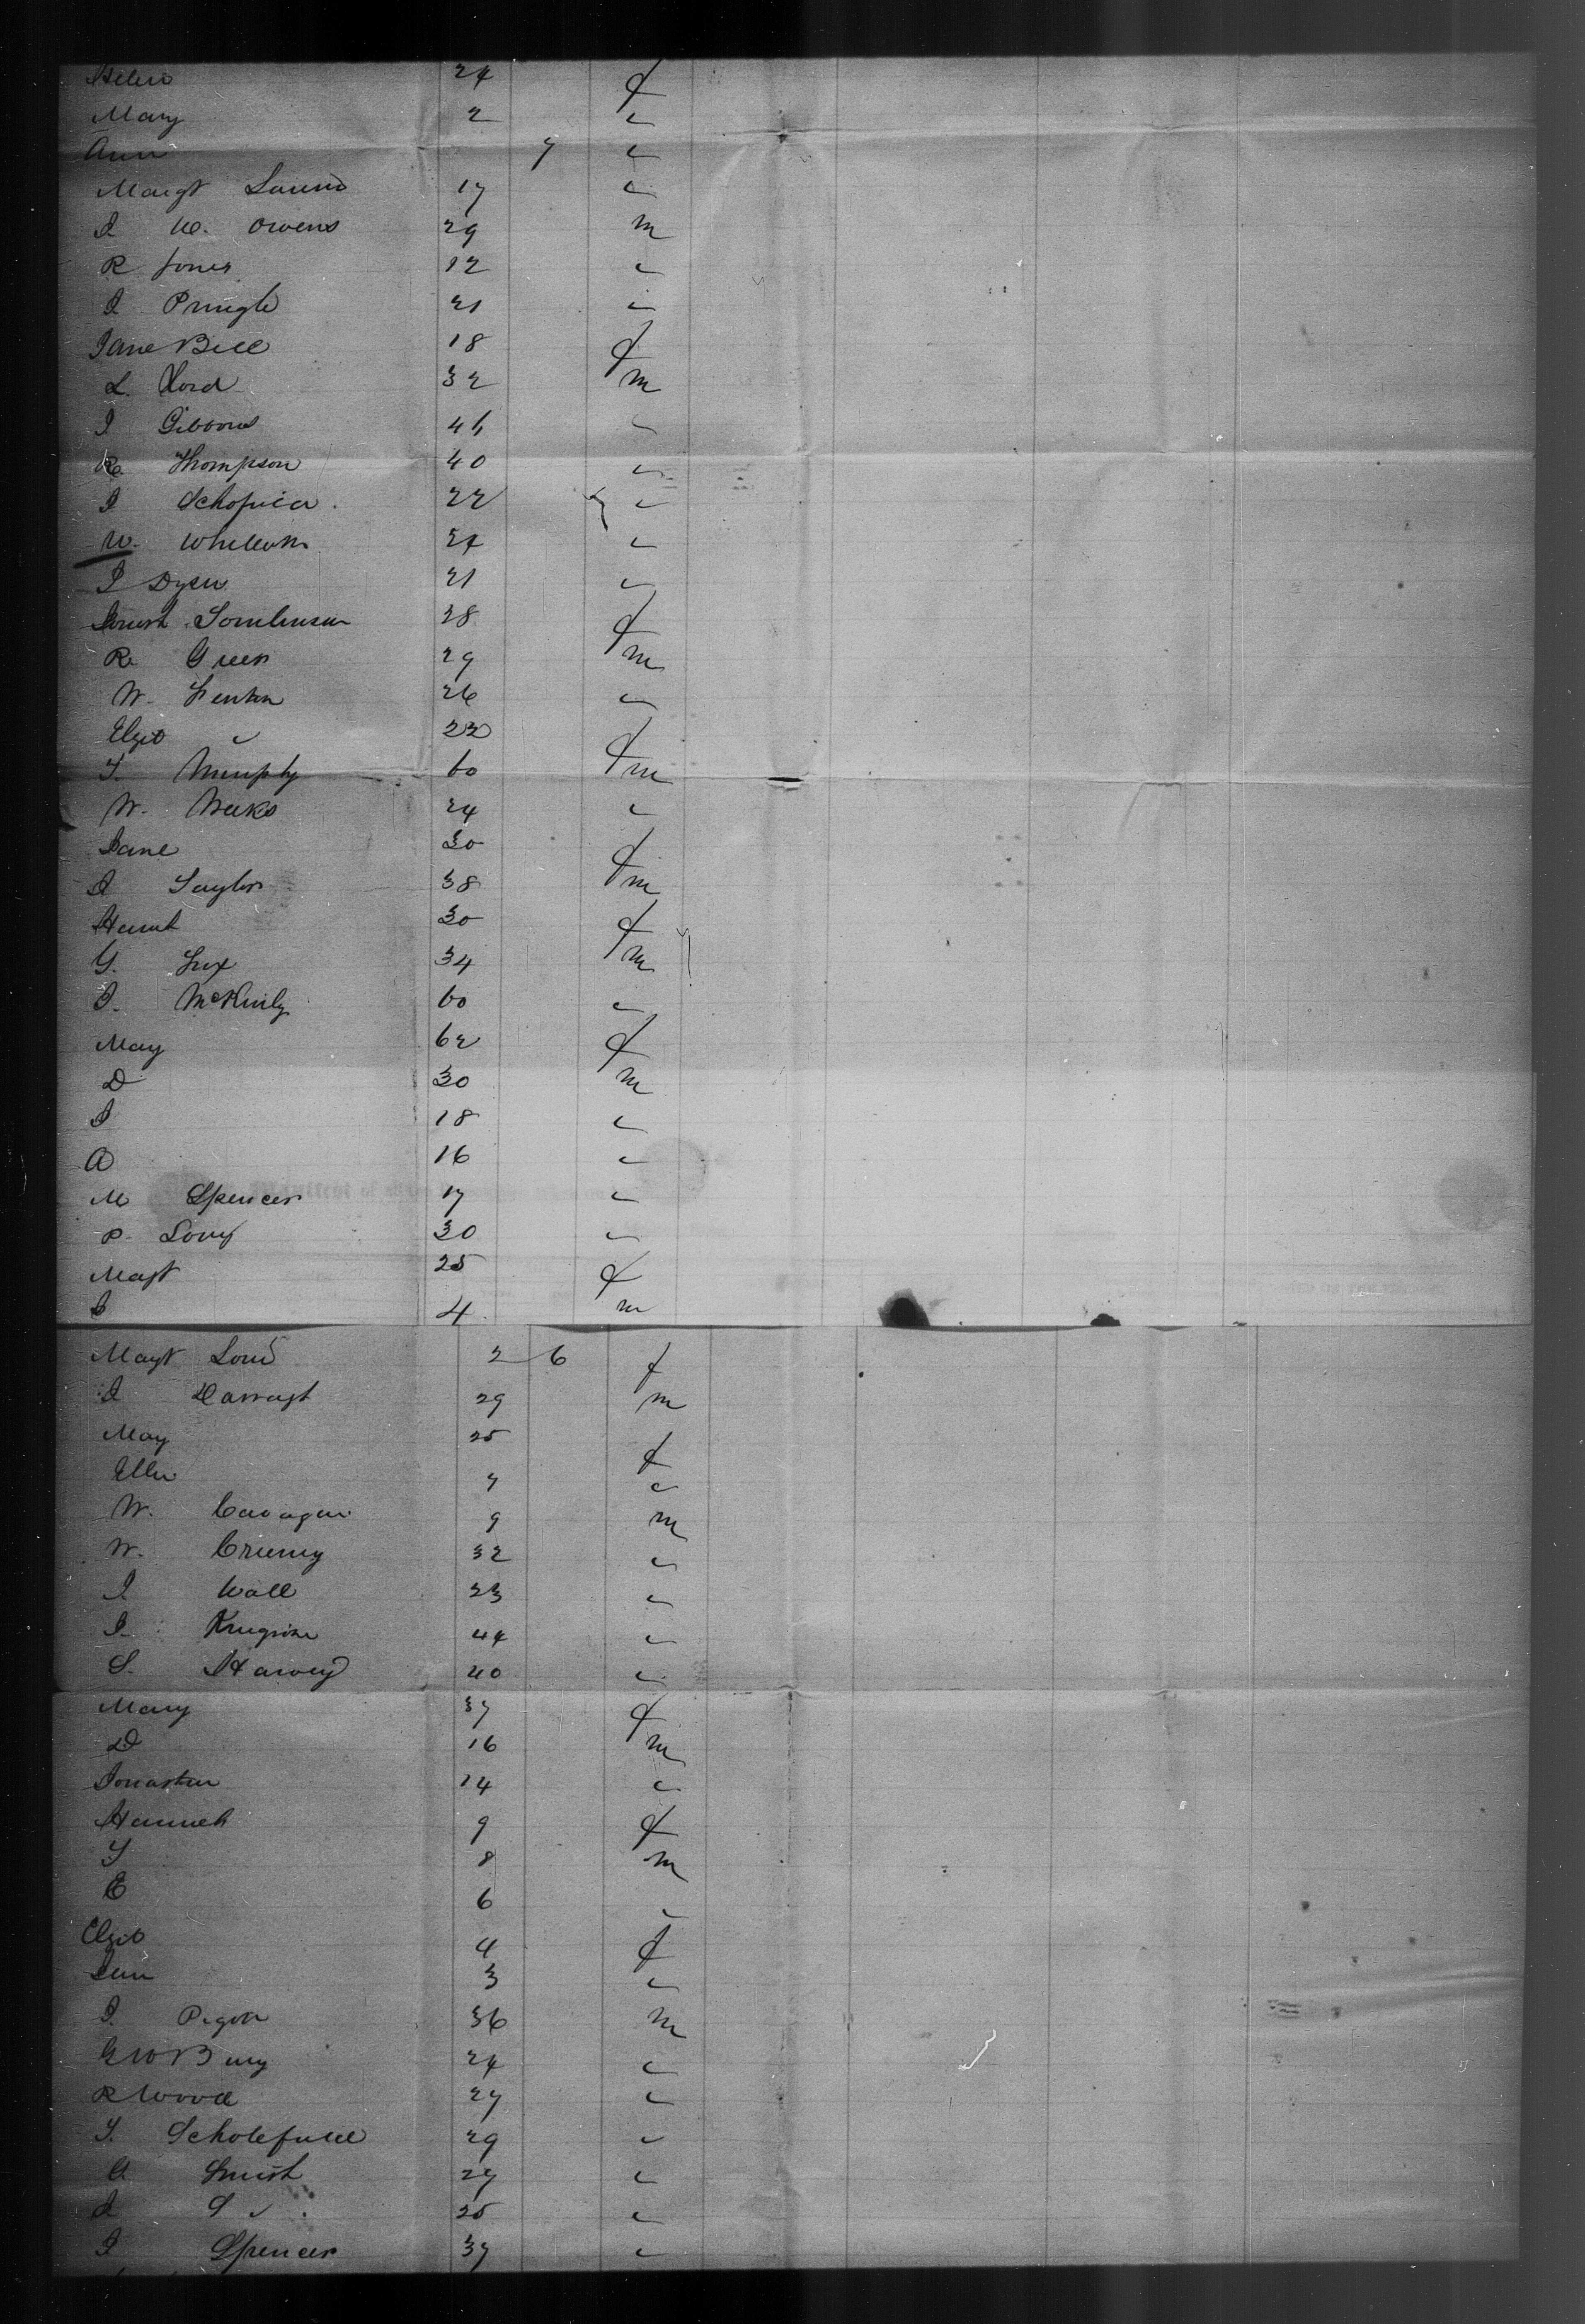 Helen 24 f
Mary 2 "
Ann 7 "
Margt 17 "
J W. Owens 29 m
R Jones 12 "
J Pringle 21 "
Jane Bell 18 f
L. Lord 32 m
J Gibbons 46 "
R. Thompson 40 "
J 22 "
W. 24 "
J Dyson 21 "
Tomlinson 28 f
R. Green 29 m
W. Fenton 26 "
Elizt " 22 f
T. Murphy 60 m
W. Weeks 24 "
Jane 30 f
J Taylor 38 m
Hanh 30 f
G. 34 m
J. McKinly 60 "
Mary 62 f
D 30 m
J 18 "
A 16 "
M Spencer 17 "
P. 30 "
Magt 25 f
J 4 m
Magt 2 6 f
J Darragh 29 m
Mary 25 f
Ellen 7 "
W. 9 m
W. 32 "
J. Wall 23 "
J. 44 "
S. Harvey 40 "
Mary 37 f
D 16 m
Jonathan 14 "
Hannah 9 f
T 8 m
E 6 "
Elzt 4 f
3 "
J. 36 m
G W Bury 24 "
R Wood 27 "
T. Scholefield 29 "
Smith 27 "
J S " 25 "
J Spencer 37 "